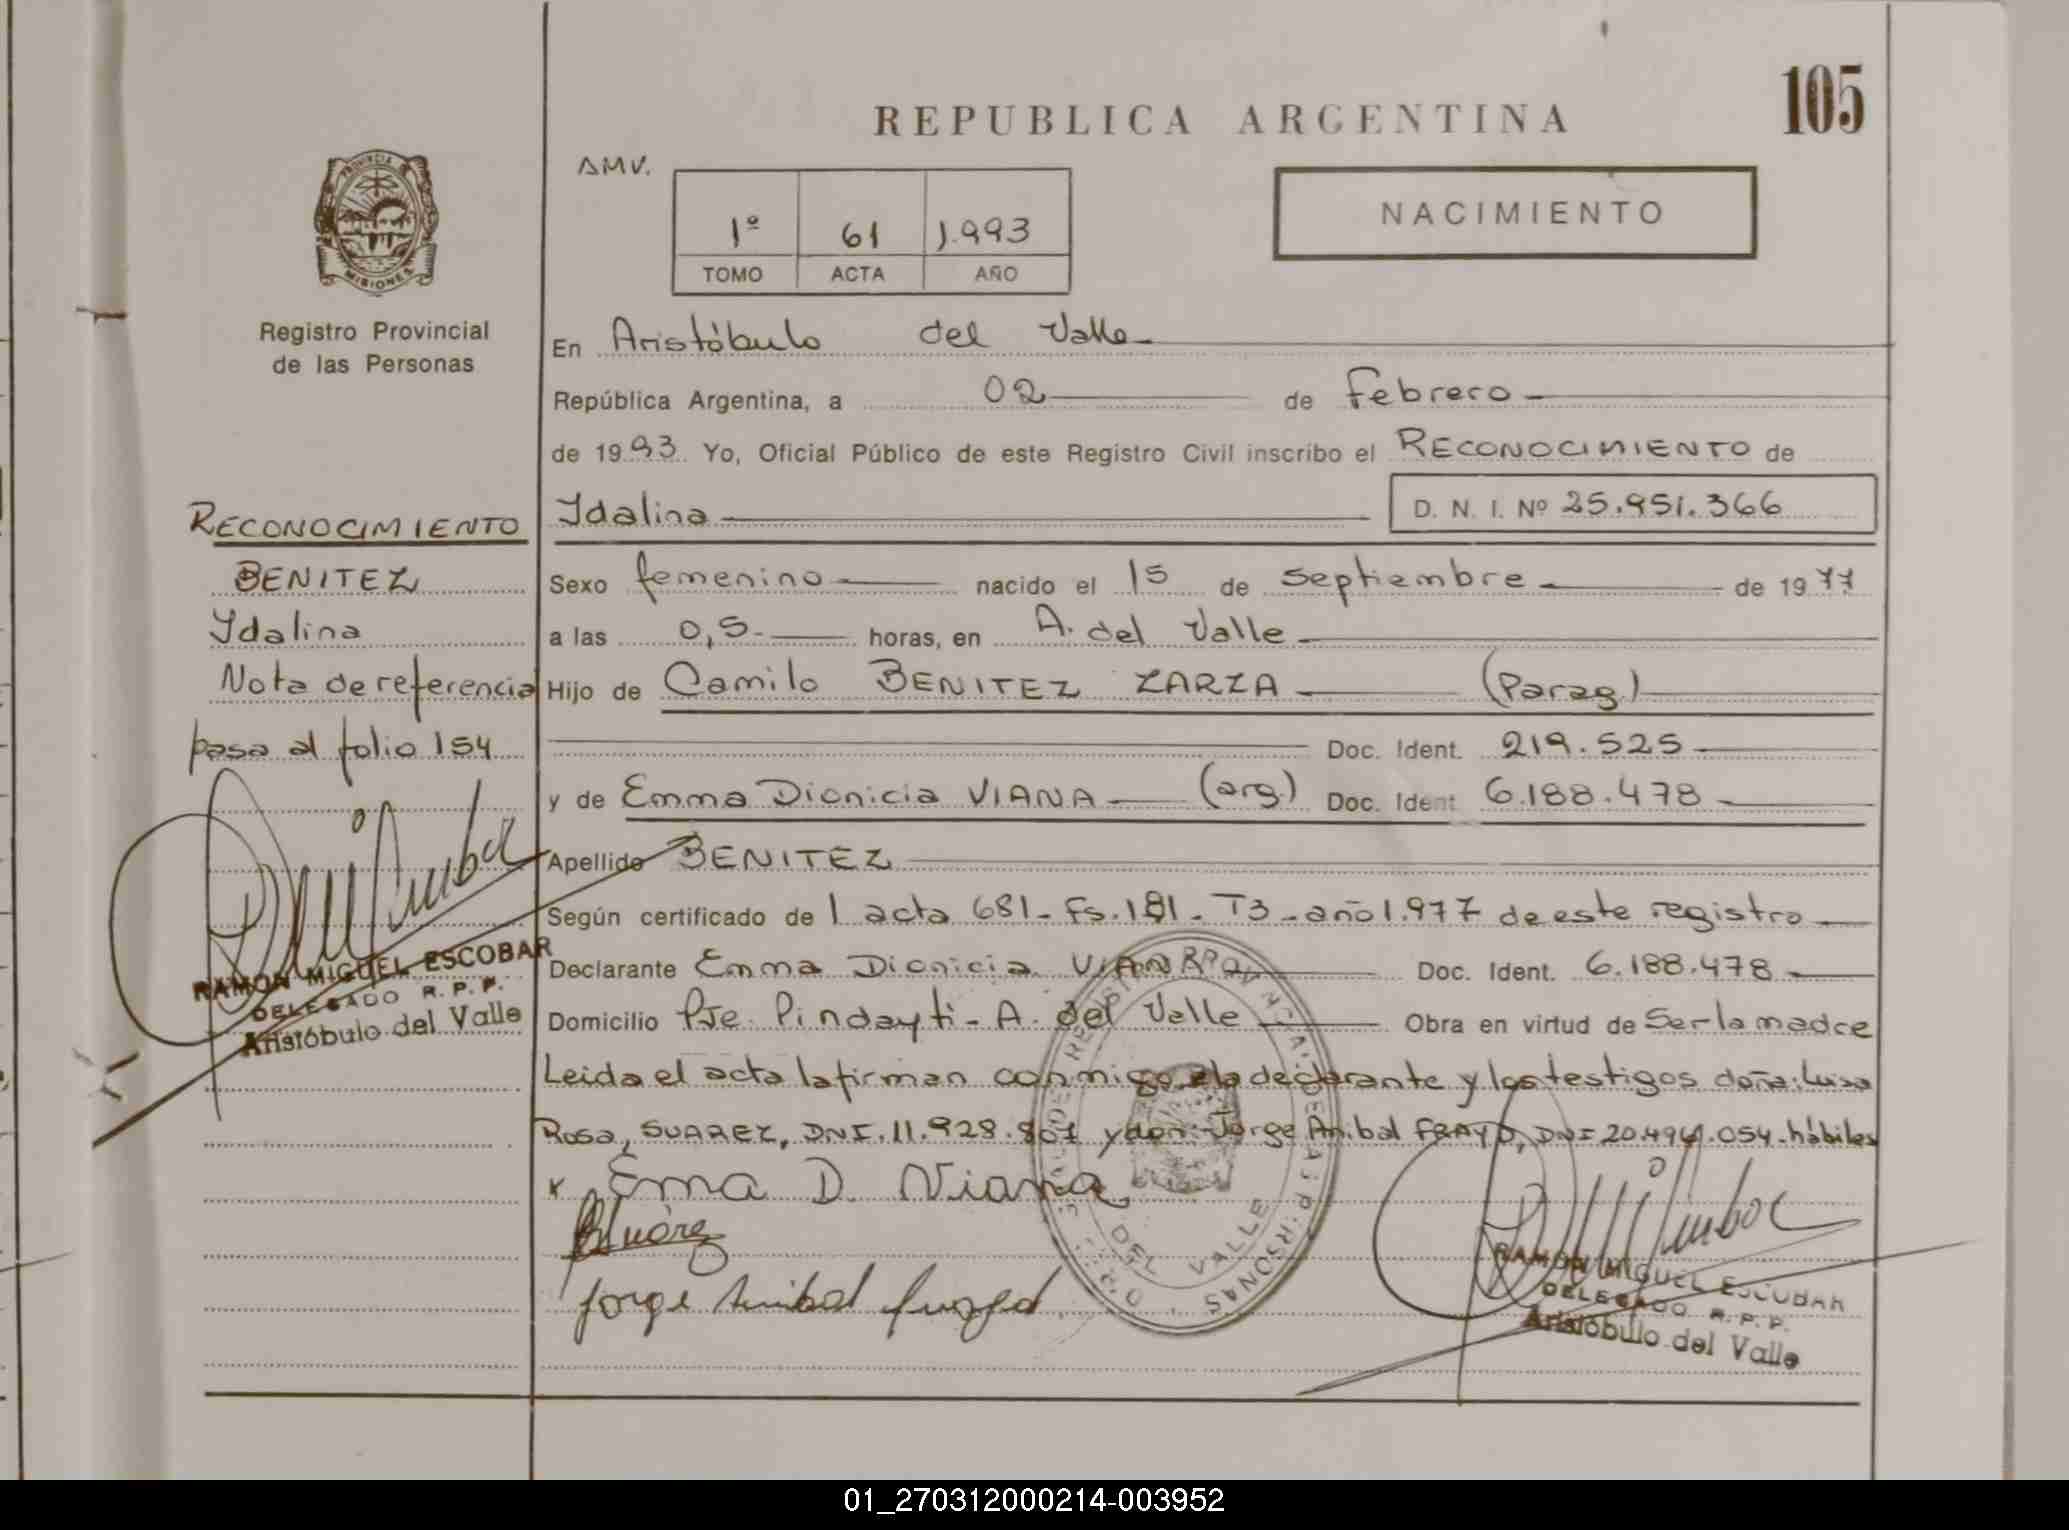 105
REPUBLICA ARGENTINA
AMV.
1º 61 1.993
TOMO ACTA AÑO
NACIMIENTO
PROVINCIA DE
MISIONES
Registro Provincial
de las Personas
En Aristóbulo del Valle
República Argentina, a 02 de Febrero
de 1993 Yo, Oficial Público de este Registro Civil inscribo el RECONOCIMIENTO de
Ydalina D. N. I. Nº 25.951.366
RECONOCIMIENTO
BENITEZ
Ydalina
Nota de referencia
pasa al folio 154
RAMON MIGUEL ESCOBAR
DELEGADO R. P. P.
Aristóbulo del Valle
Sexo femenino nacido el 15 de Septiembre de 1977
a las 0,5 horas, en A. del Valle
Hijo de Camilo BENITEZ ZARZA (Parag.)
Doc. Ident. 219.525
y de Emma Dionicia VIANA (arg.) Doc. Ident. 6.188.478
Apellido BENITEZ
Según certificado de l acta 681 - Fs. 181 - T3 - año 1.977 de este registro
Declarante Emma Dionicia VIANA Doc. Ident. 6.188.478
Domicilio Pje. Pindayti - A. del Valle Obra en virtud de Ser la madre
Leida el acta la firman conmigo la declarante y los testigos doña: Luisa
Rosa, SUAREZ, DNI. 11.928.807 y don: Jorge Anibal , DNI 20.494.054 - hábiles
x Ema D. Viana
Suárez
Jorge Anibal
DEL VALLE
RAMON MIGUEL ESCOBAR
DELEGADO R. P. P.
Aristóbulo del Valle
01_270312000214-003952